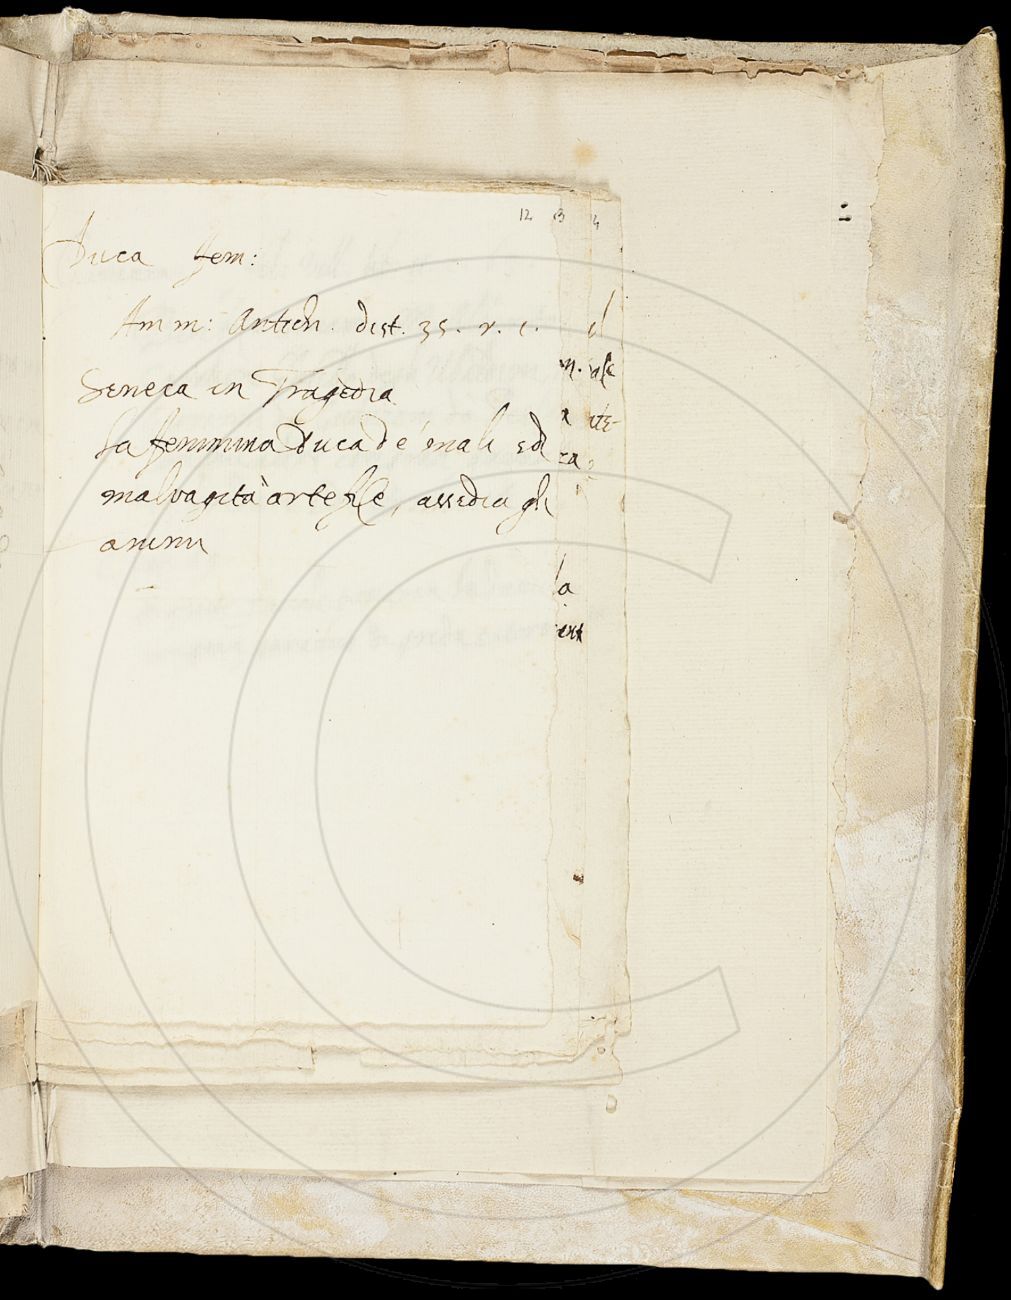 12 13 14
Duca fem:
Amm: Antich. dist. 35. r. 1.
Seneca in Tragedia
La femmina Duca de' mali ed
malvagità artefice, assedia gli
animi
il
la